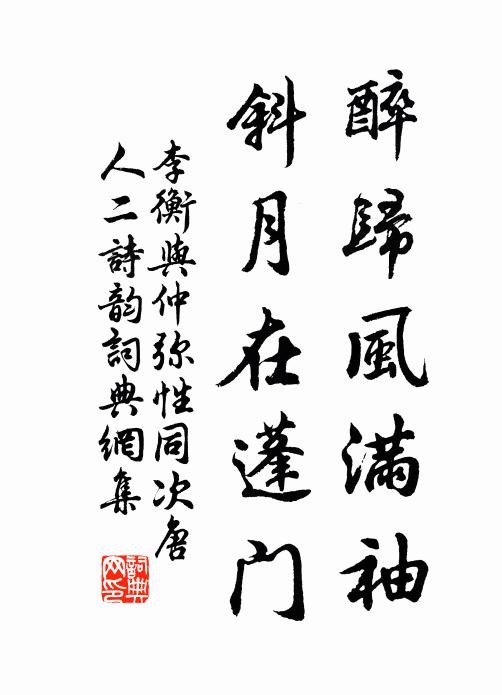 醉歸風滿袖
斜月在蓬門
李衡與仲弥性同次唐
人二詩韵詞典網集
詞典
网印